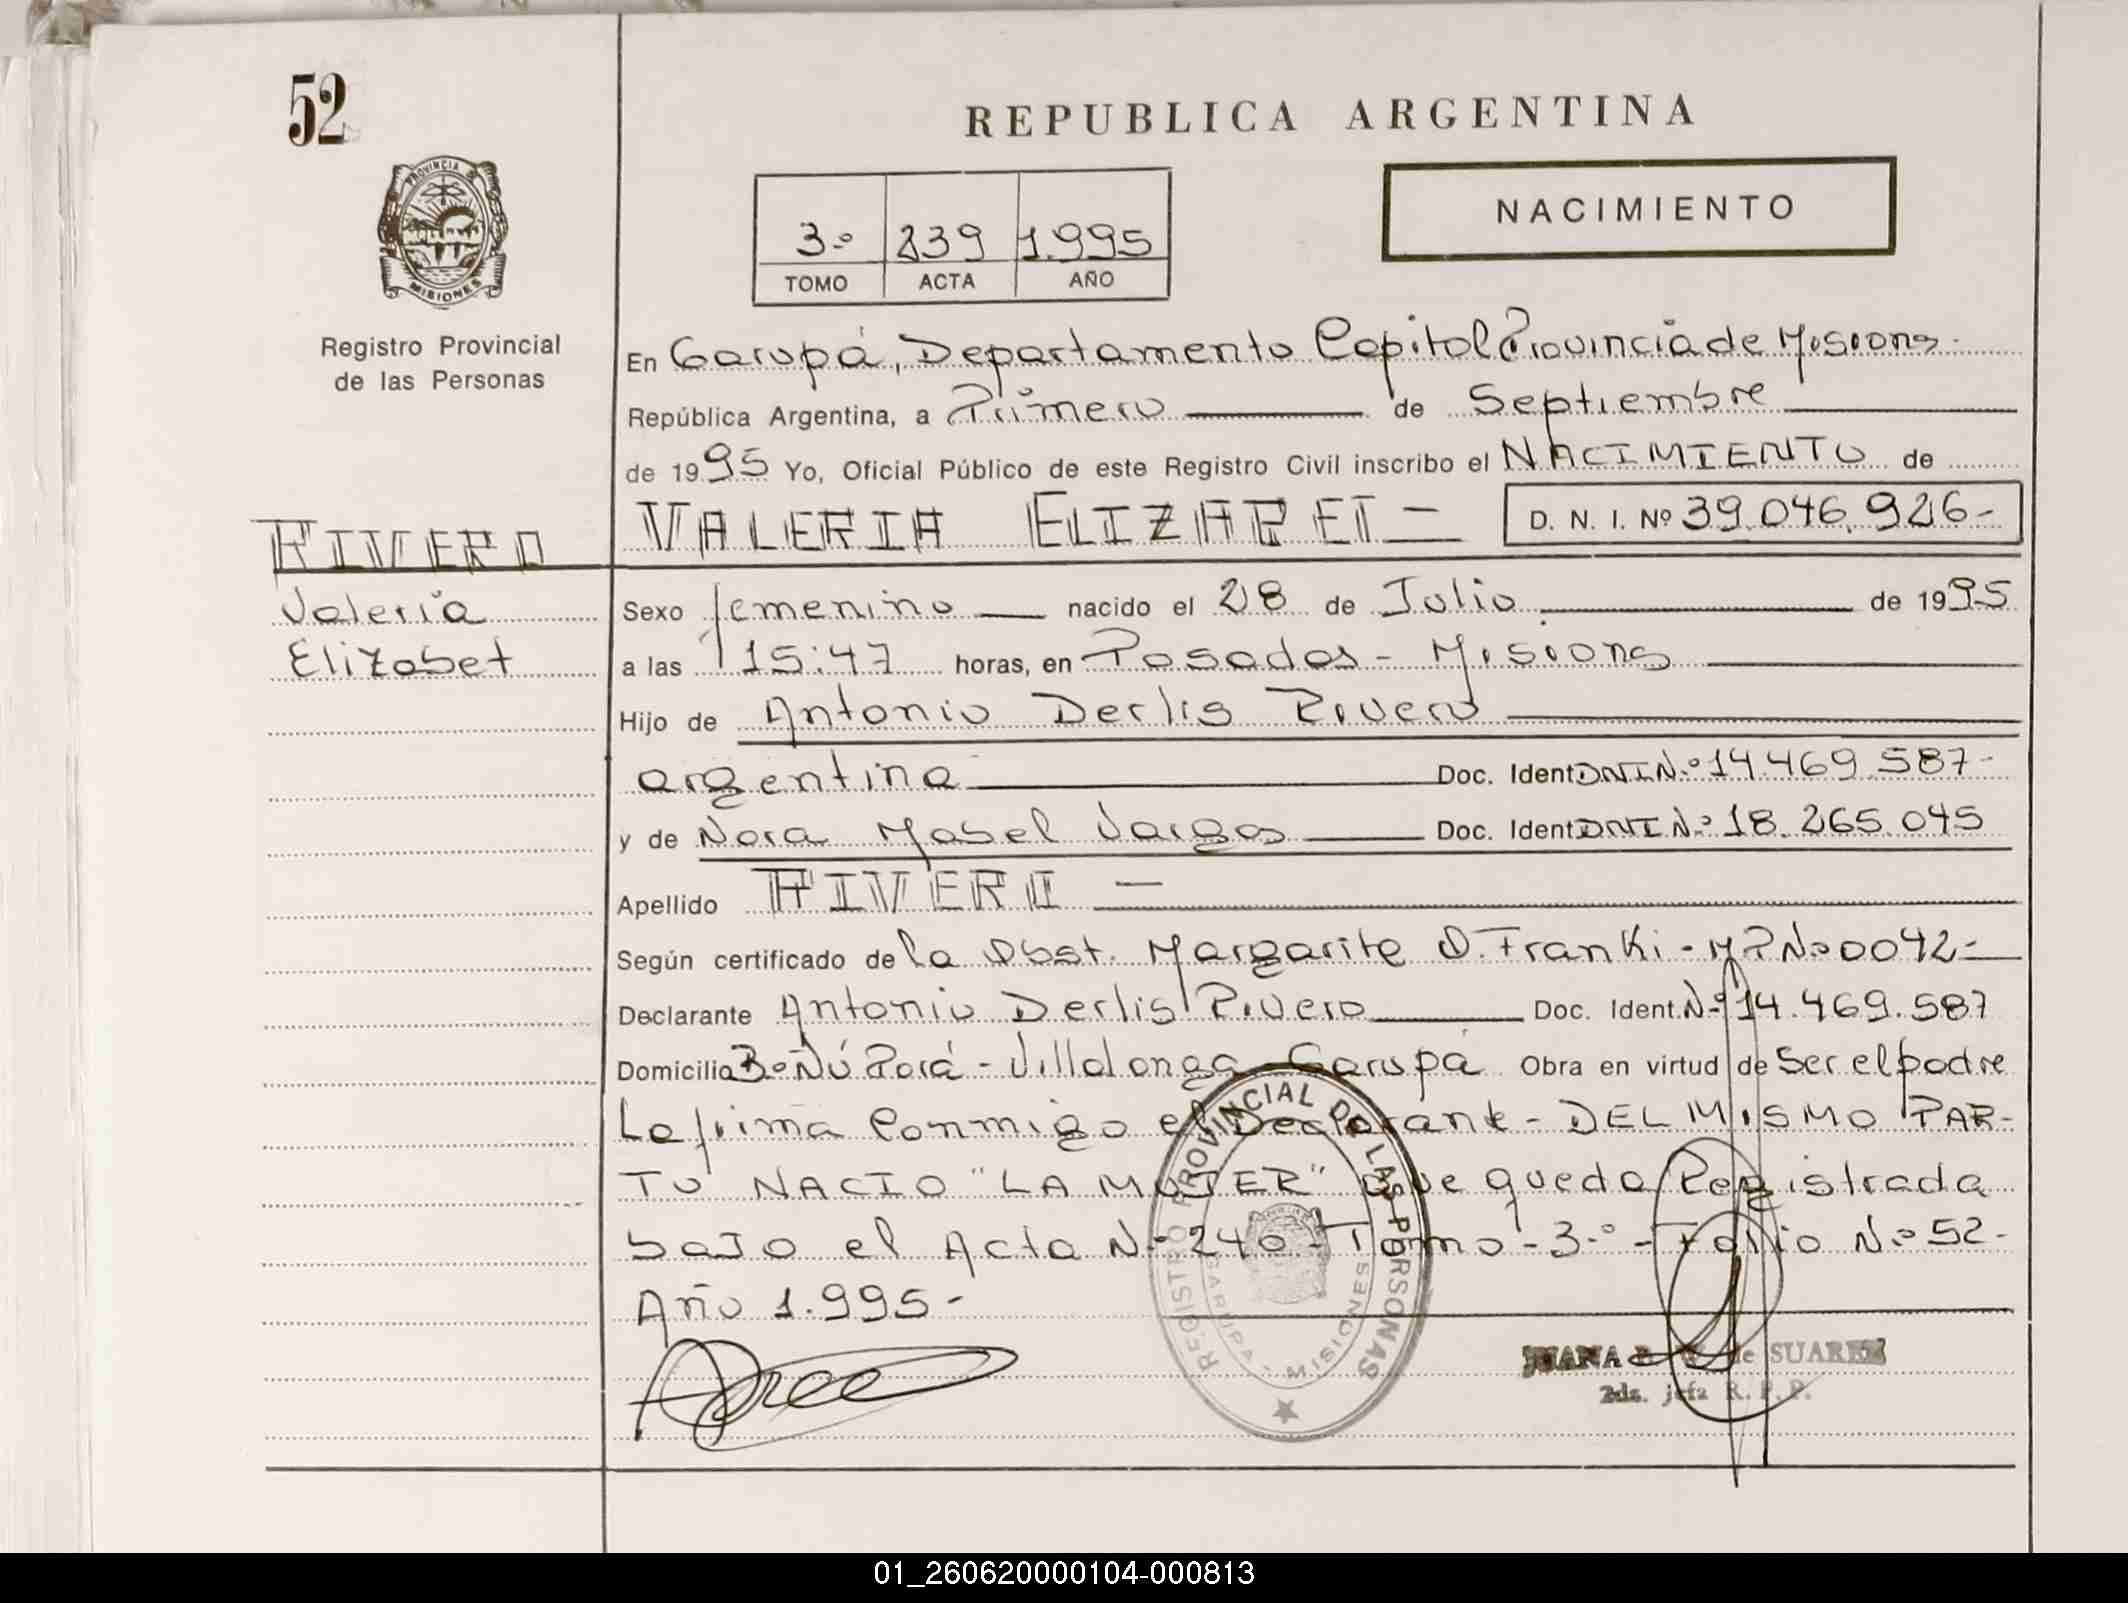 52
REPUBLICA ARGENTINA
NACIMIENTO
3.º 239 1.995
TOMO ACTA AÑO
PROVINCIA DE
MISIONES
Registro Provincial
de las Personas
En Garupá, Departamento Capital Provincia de Misiones
República Argentina, a Primero de Septiembre
de 1995 Yo, Oficial Público de este Registro Civil inscribo el NACIMIENTO de
RIVERO
VALERIA ELIZABET - D. N. I. Nº 39.046.926-
Valeria
Elizabet
Sexo femenino nacido el 28 de Julio de 1995
a las 15:47 horas, en Posadas - Misiones
Hijo de Antonio Derlis Rivero
argentina Doc. Ident DNI N.º 14.469.587-
y de Nora Mabel Vargas Doc. Ident DNI N.º 18.265.045
Apellido RIVERO -
Según certificado de la Obst. Margarita D. Franki - M P Nº 0042-
Declarante Antonio Derlis Rivero Doc. Ident. N.º 14.469.587
Domicilia Bº Ñú Porá - Villalonga - Garupá Obra en virtud de Ser el padre
Lo firma Conmigo el Declarante - DEL MISMO PAR-
TO NACIO "LA MUJER" que queda Registrada
bajo el Acta Nº 240 - Tomo - 3.º - Folio Nº 52-
Año 1.995-
REGISTRO PROVINCIAL DE LAS PERSONAS
GARUPA - MISIONES
JUANA de SUAREZ
2da. jefa R. P. P.
01_260620000104-000813